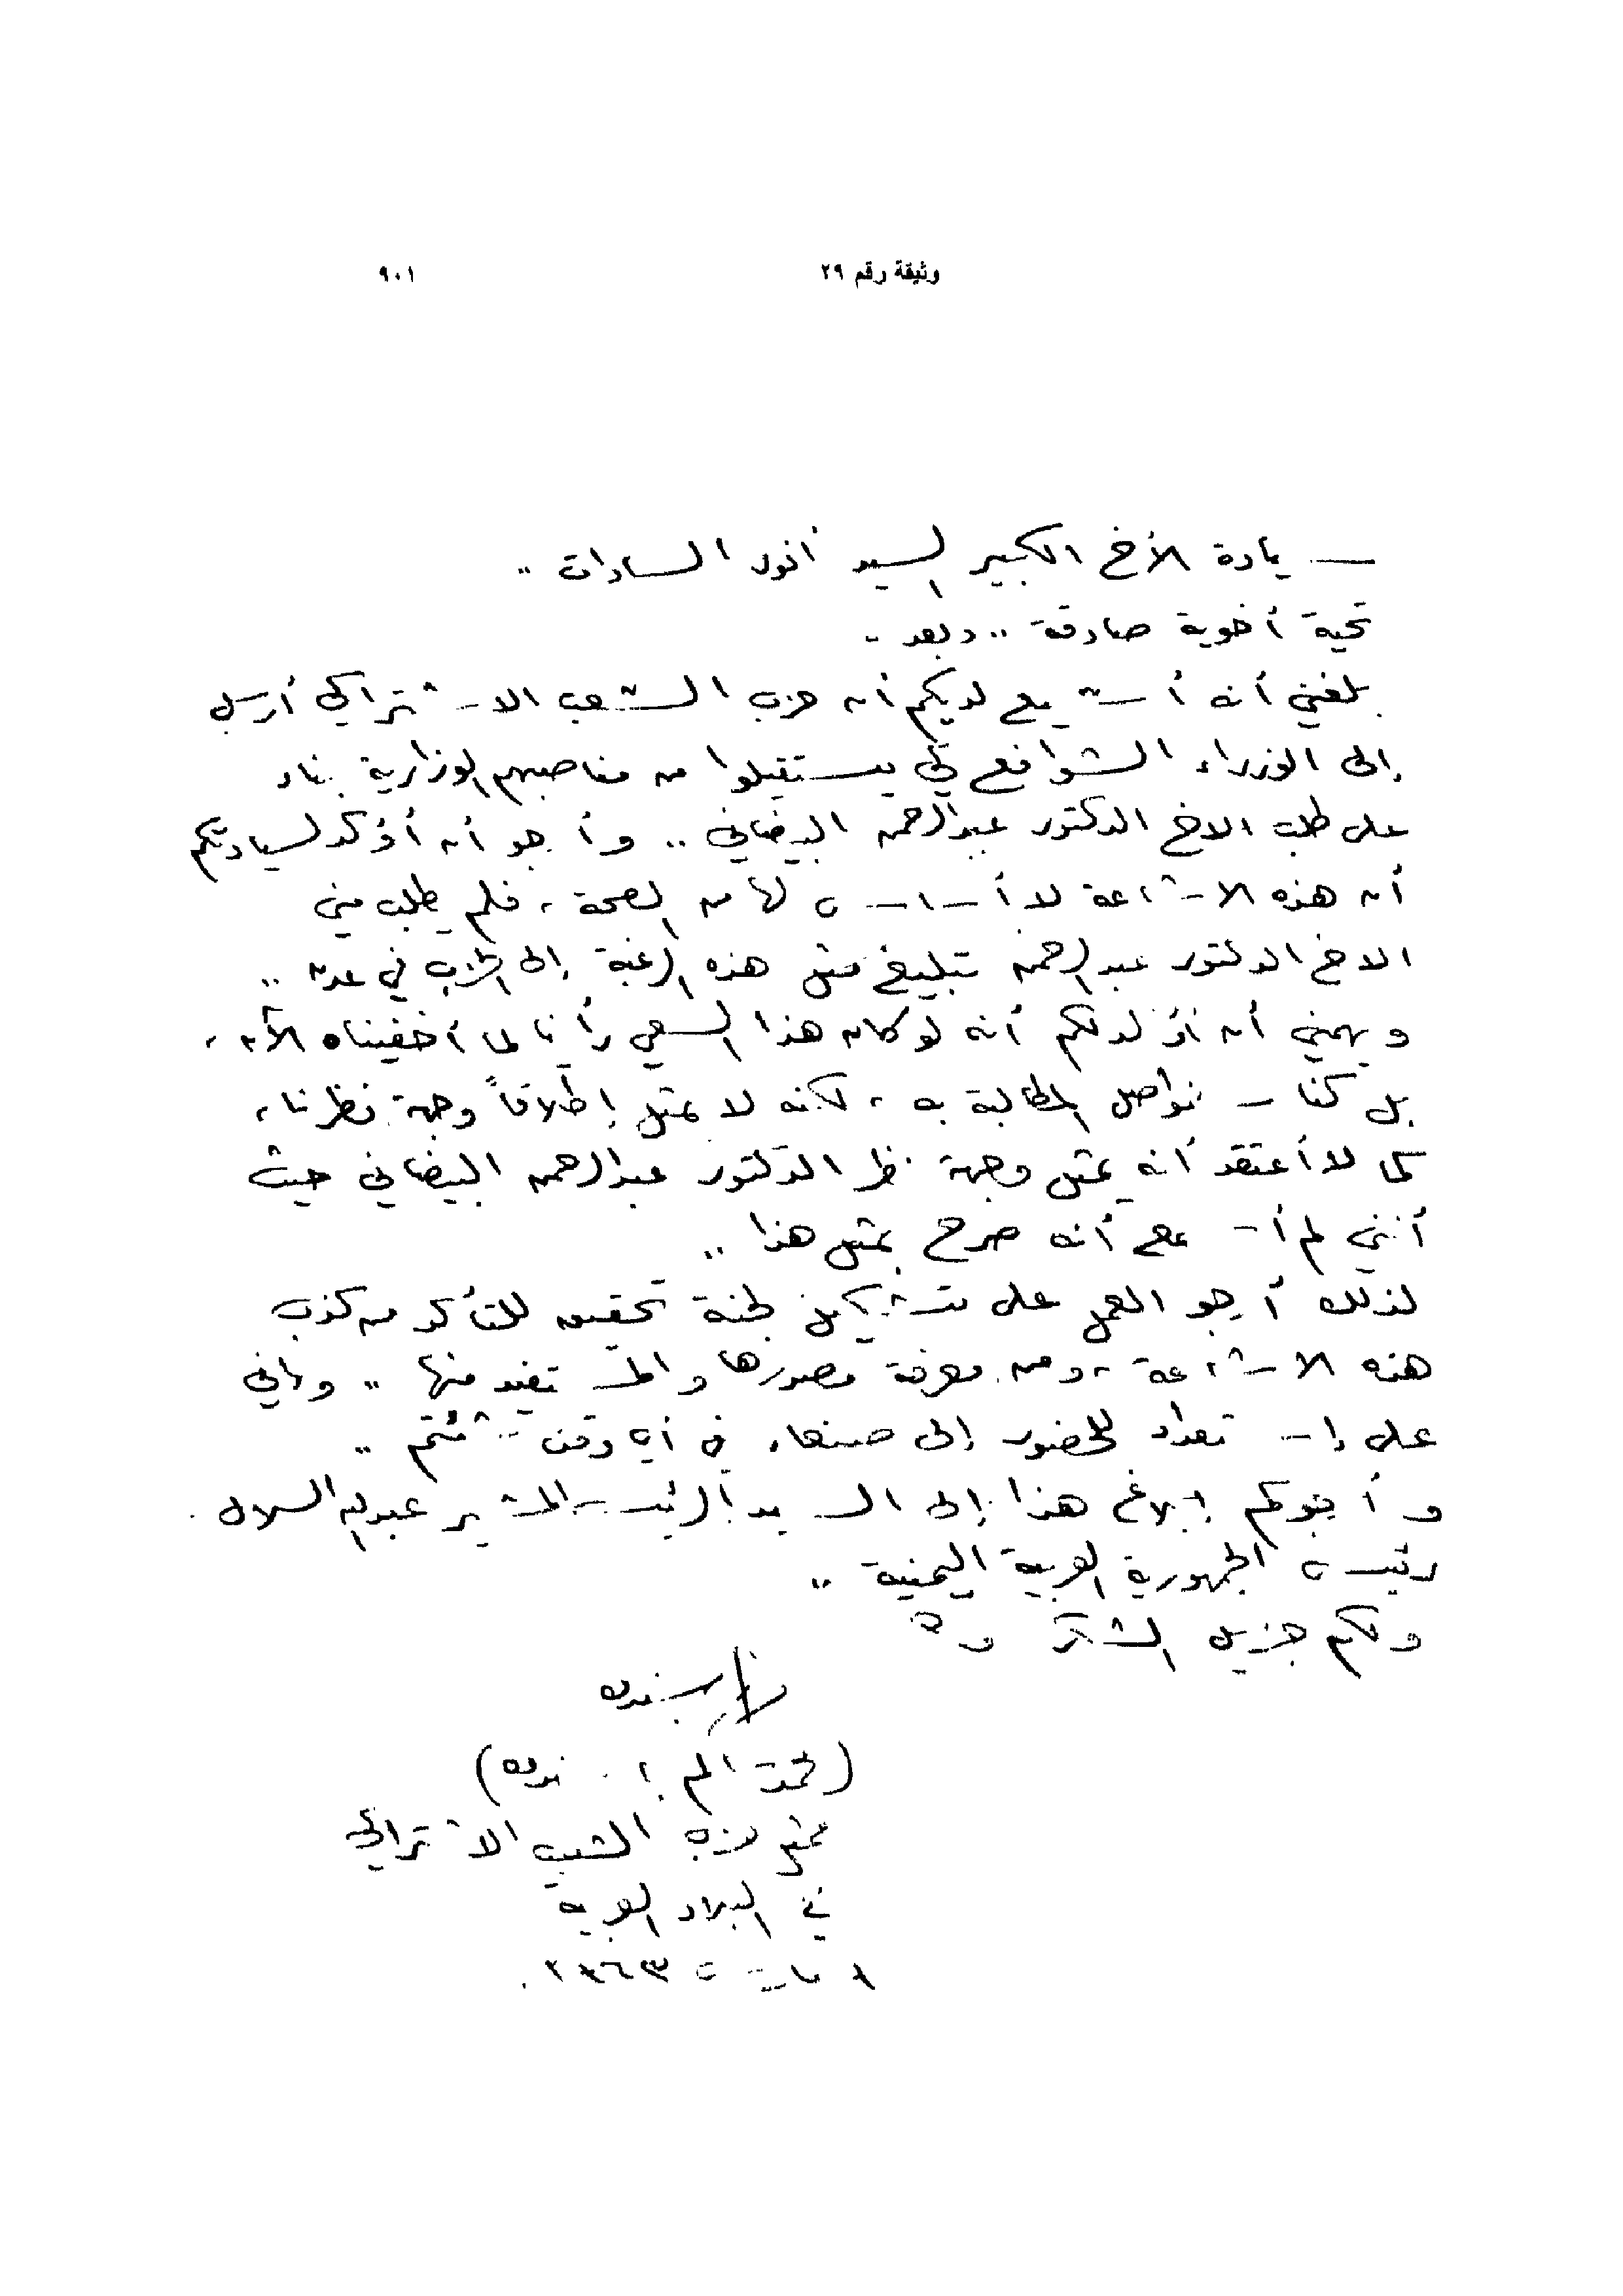 وثيقة رقم ٢٩
٩٠١
سيادة الأخ الكبير السيد أنور السادات ..
تحية أخوية صادقة .. وبعد ..
بلغني أنه أشيع لديكم أن حزب الشعب الاشتراكي أرسل
إلى الوزراء الشوافع لكي يستقيلوا من مناصبهم الوزارية بناء
على طلب الاخ الدكتور عبدالرحمن البيضاني .. وأرجو أن أؤكد لسيادتكم
أن هذه الاشاعة لا أساس لها من الصحة ، فلم يطلب مني
الاخ الدكتور عبدالرحمن تبليغ مثل هذه الرغبة إلى الحزب في عدن ..
ويهمني أن أؤكد لكم أنه لو كان هذا السعي رأينا لما أخفيناه الآن ،
بل كنا نواصل المطالبة به ، لكنه لا يمثل إطلاقاً وجهة نظرنا ،
كما لا أعتقد أنه يمثل وجهة نظر الدكتور عبدالرحمن البيضاني حيث
أنني لم أسمع أنه صرح بمثل هذا ..
لذلك أرجو العمل على تشكيل لجنة تحقيق للتأكد من كذب
هذه الاشاعة ، ومن معرفة مصدرها والمستفيد منها .. وإني
على إستعداد للحضور إلى صنعاء في أي وقت شئتم ..
وأرجوكم إبلاغ هذا إلى السيد الرئيس المشير عبدالله السلال
رئيس الجمهورية العربية اليمنية ..
ولكم جزيل الشكر
باسندوه
(محمد سالم باسندوه)
ممثل حزب الشعب الاشتراكي
في البلاد العربية
مارس ١٩٦٣